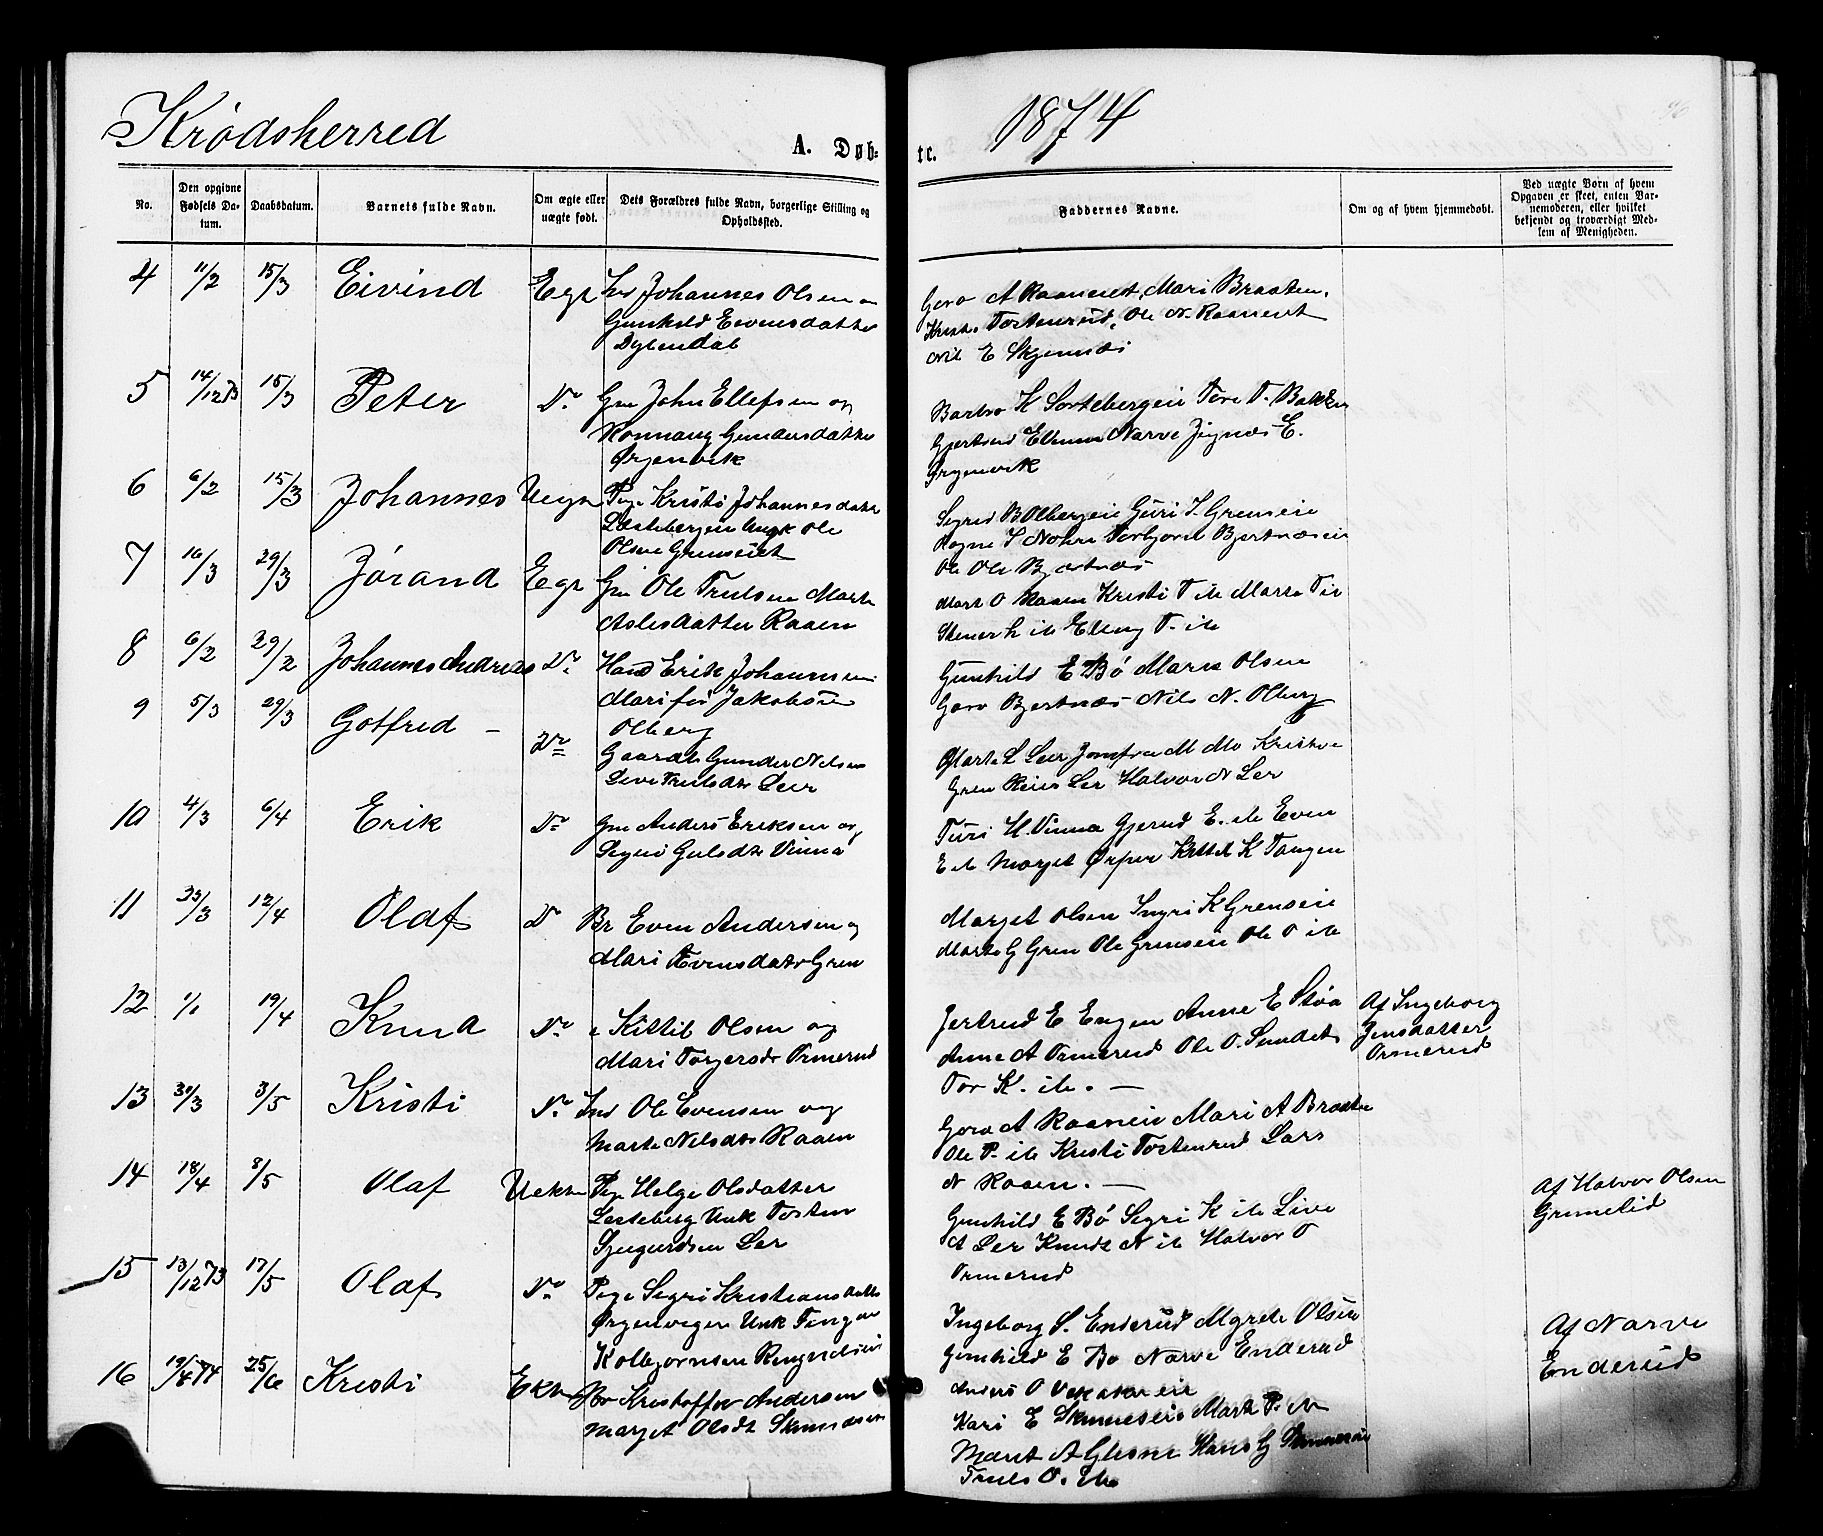 Krødsherred
1874
A. Døb-
te.
No.
Den opgivne Fødsels Da-tum.
Daabsdatum.
Barnets fulde Navn.
Om ægte eller uægte født.
Dets Forældres fulde Navn, borgerlige Stilling og Opholdssted.
Faddernes Navne.
Om og af hvem hjemmedøbt.
Ved uægte Børn af hvem Opgaven er skeet, enten Bar-nemoderen, eller hvilket bekjendt og troværdigt Med-lem af Menigheden.
4 11/2 15/3 Eivind Egt Johannes Olsen
Gunhild Evensdatter
Goro A Raaneiet, Mari Braaten,
Tostenrud, Ole N. Raaneiet
E Skjennæs
5 14/12 73 15/3 Peter Do Gm John Ellefsen og
Ronnaug Gundersdatter
Ørgenvik
Barbro K Sortebergeie Tore T. Bakken
Narve E.
Ørgenvik
6 6/2 15/3 Johannes Uegt Pige Kristi Johannesdatt
Ungk Ole
Olsen Grenseiet
Segrid B Olbergeie Guri J. Grenseie
Torbjørn Bjertnæseie
Ole Ole Bjertnæs
7 16/3 29/3 Jørand Egt Gm Ole Trulsen Marte
Aslesdatter Raaen
Mart O Raaen Kristi T ib Marte T ib
Elling T. ib
8 6/2 29/2 Johannes Andreas Do Hand Erik Johannsen
Mari før Jakobsen
Olberg
Gunhild E Bø Maria Olsen
Goro Bjertnæs Nils N. Olberg
9 5/3 29/3 Gotfred – Do
Gaardb Gunder Nilsen
Live Trulsdtr Leer
Marte L Leer Jomfru M Mo
Gren Ler Halvor N Ler
10 4/3 6/4 Erik Do Gm Anders Eriksen og
Segri Gulsdtr Vinna
Turi H. Vinna Gjerud E. ib Even
E ib Marget Ørpen Kittil K Tangen
11 23/3 12/4 Olaf Do Br Even Andersen og
Mari Evensdatr Gren
Marget Olsen Ingri K Grenseie
Marte G Gren Ole Grenseie Ole T ib
12 1/1 19/4 Knud Do Kittil Olsen og
Mari Torgersdr Ormerud
Jertrud E Engen Anne E Stoa
Anne A Ormerud Ole O. Sundet
Tor K. ib. —
Af Ingeborg
Jensdatter
Ormerud
13 30/3 3/5 Kristi Do Ind Ole Evensen og
Marte Nilsdtr Raaen
Goro A Raaneie Mari A Braaten
Ole P. ib Kristi Tostenrud Lars
N Raaen. —
14 18/4 8/5 Olaf Uekte Pige Helge Olsdatter
Lesteberg Unk Tosten
Sjugurdsen Ler
Gunhild E Bø Segri K ib Live
A Ler Knudt N ib Halvor T
Ormerud
Af Halvor Olsen
Grimelid
15 13/12 73 17/5 Olaf Do Pige Segri Kristiansdatte
Ørgenvigeie Unk Torger
Kolbjørnsen
Ingeborg S. Enderud Mgrete Olsen
Gunhild E Bø Narve Enderud
Anders O
Af Narve
Enderud
16 19/4 74 25/6 Kristi Ekte Kristoffer Andersen
Marget Olsdt
Kari E Marte P. ib
Marit A Glesne Hans G
Truls O. ib